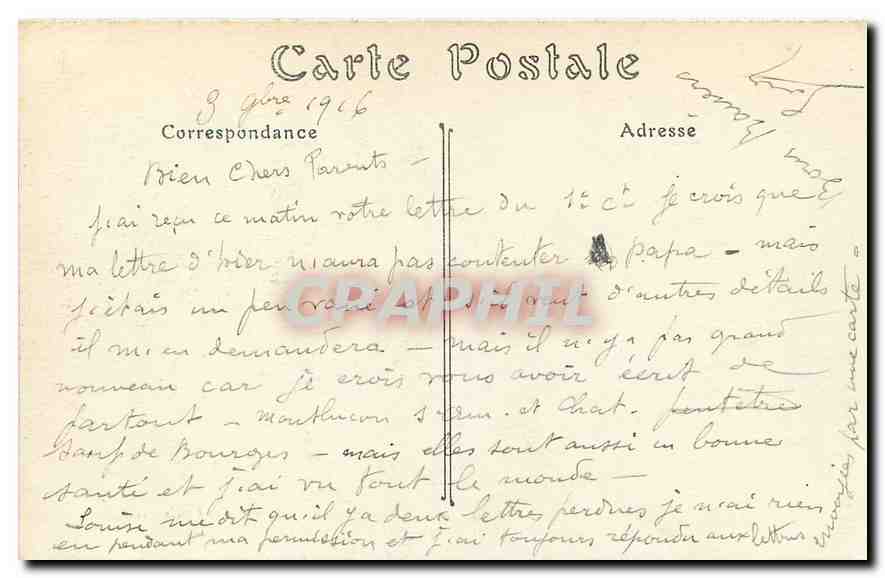 Carte Postale
3 9bre 1916
Correspondance
Adresse
Bien Chers Parents –
j'ai reçu ce matin votre lettre du 1er ct je crois que
ma lettre d'hier n'aura pas contenter papa – mais
j'étais un peu et s'il veut d'autres détails
il m'en demandera – mais il n'y a pas grand
nouveau car je crois vous avoir écrit de
partout – Montluçon et Chat. peutêtre
sauf de Bourges – mais elles sont aussi en bonne
santé et j'ai vu tout le monde –
Louise me dit qu'il y a deux lettres perdues je n'ai rien
eu pendant ma permission et j'ai toujours répondu aux lettres
envoyées par une carte –
Bons baisers
CPAPHIL